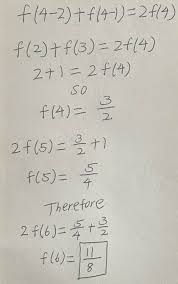 f(4-2)+f(4-1)=2f(4)
f(2)+f(3)=2f(4)
2+1=2f(4)
so
f(4)=3/2
2f(5)=3/2+1
f(5)=5/4
Therefore
2f(6)=5/4+3/2
f(6)=11/8